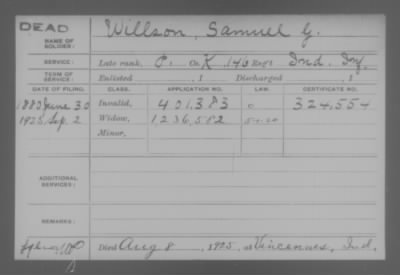 DEAD
NAME OF SOLDIER: Willson, Samuel G.
SERVICE: Late rank, P. Co. K, 146 Reg't Ind. Inf.
TERM OF SERVICE: Enlisted , 1 Discharged , 1
DATE OF FILING. CLASS. APPLICATION NO. LAW. CERTIFICATE NO.
1880 June 30 Invalid, 401,383 324,554
1925, Sep. 2 Widow, 1,236,582
Minor,
ADDITIONAL SERVICES:
REMARKS:
Died Aug 8, 1925, at Vincennes, Ind.